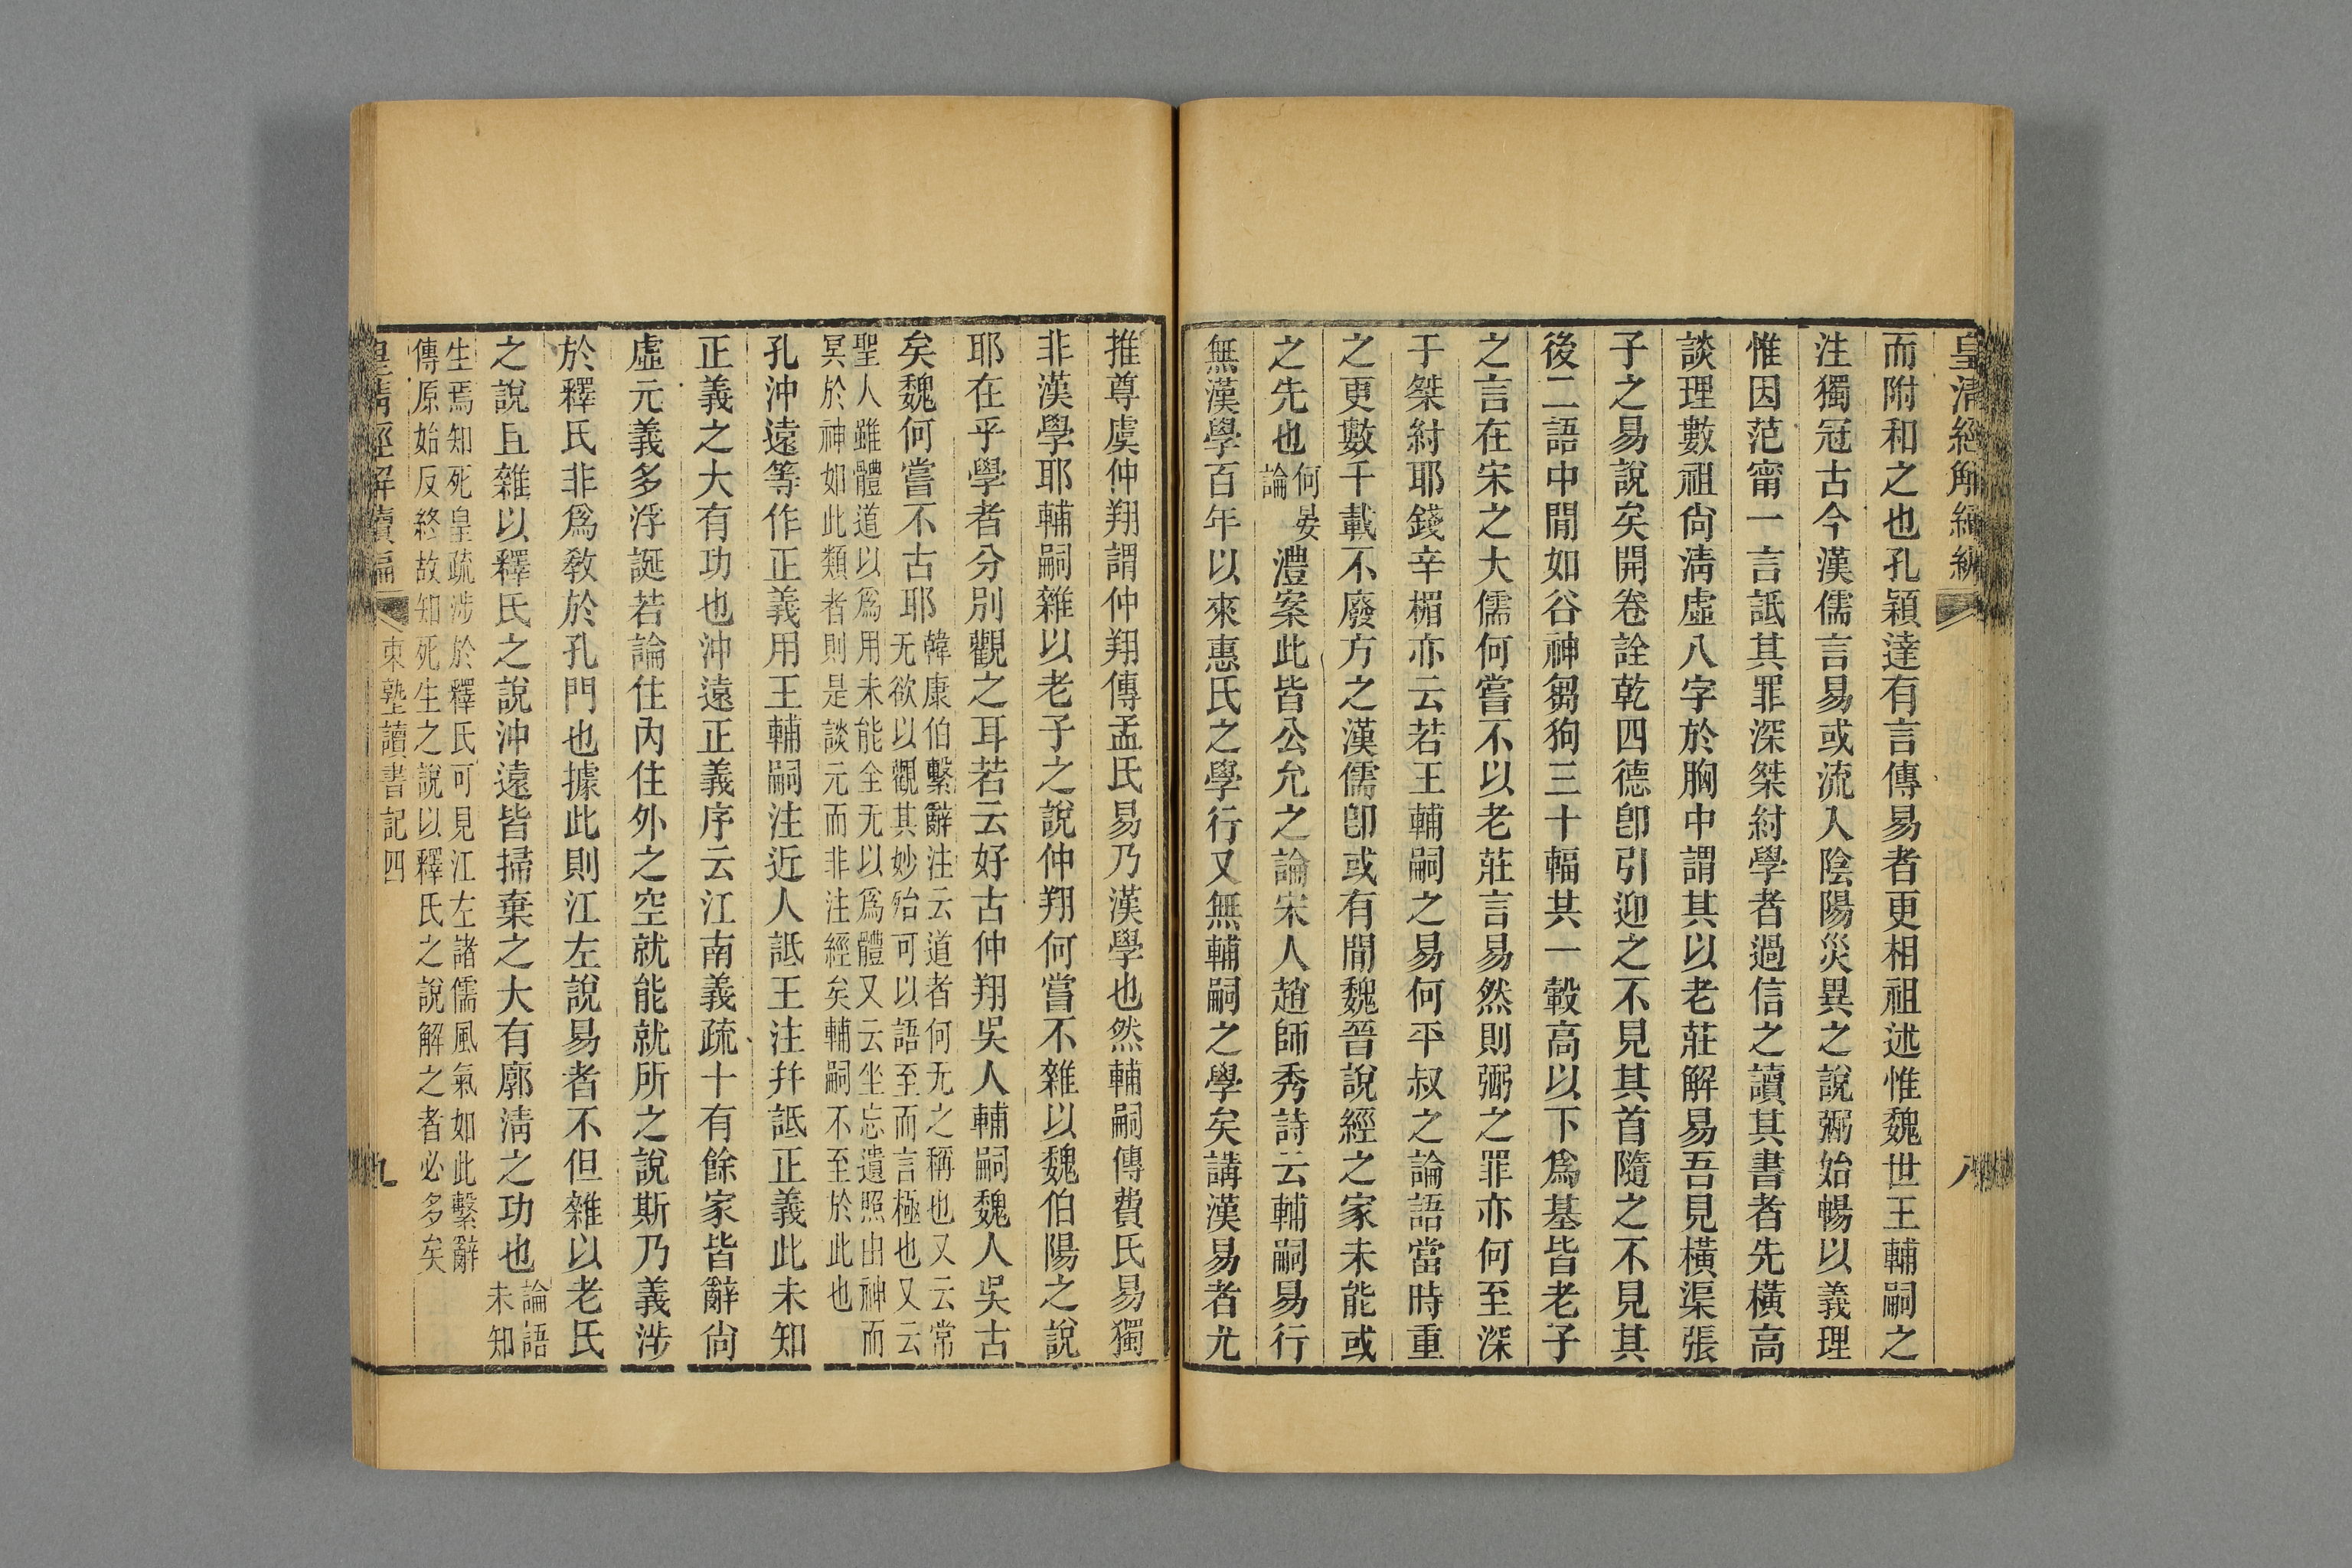 皇清經解續編
八
而附和之也孔穎達有言傳易者更相祖述惟魏世王輔嗣之
注獨冠古今漢儒言易或流入陰陽災異之說弼始暢以義理
惟因范甯一言詆其罪深桀紂學者過信之讀其書者先橫高
談理數祖尙清虛八字於胸中謂其以老莊解易吾見橫渠張
子之易說矣開卷詮乾四德卽引迎之不見其首隨之不見其
後二語中閒如谷神芻狗三十輻共一轂高以下爲基皆老子
之言在宋之大儒何嘗不以老莊言易然則弼之罪亦何至深
于桀紂耶錢辛楣亦云若王輔嗣之易何平叔之論語當時重
之更數千載不廢方之漢儒卽或有閒魏晉說經之家未能或
之先也何晏論澧案此皆公允之論宋人趙師秀詩云輔嗣易行
無漢學百年以來惠氏之學行又無輔嗣之學矣講漢易者尤
推尊虞仲翔謂仲翔傳孟氏易乃漢學也然輔嗣傳費氏易獨
非漢學耶輔嗣雜以老子之說仲翔何嘗不雜以魏伯陽之說
耶在乎學者分別觀之耳若云好古仲翔吳人輔嗣魏人吳古
矣魏何嘗不古耶韓康伯繫辭注云道者何无之稱也又云常
无欲以觀其妙殆可以語至而言極也又云
聖人雖體道以爲用未能全无以爲體又云坐忘遺照由神而
冥於神如此類者則是談元而非注經矣輔嗣不至於此也
孔沖遠等作正義用王輔嗣注近人詆王注幷詆正義此未知
正義之大有功也沖遠正義序云江南義疏十有餘家皆辭尙
虛元義多浮誕若論住內住外之空就能就所之說斯乃義涉
於釋氏非爲敎於孔門也據此則江左說易者不但雜以老氏
之說且雜以釋氏之說沖遠皆掃棄之大有廓清之功也論語
未知
生焉知死皇疏涉於釋氏可見江左諸儒風氣如此繫辭
傳原始反終故知死生之說以釋氏之說解之者必多矣
皇清經解續編
東塾讀書記四
九